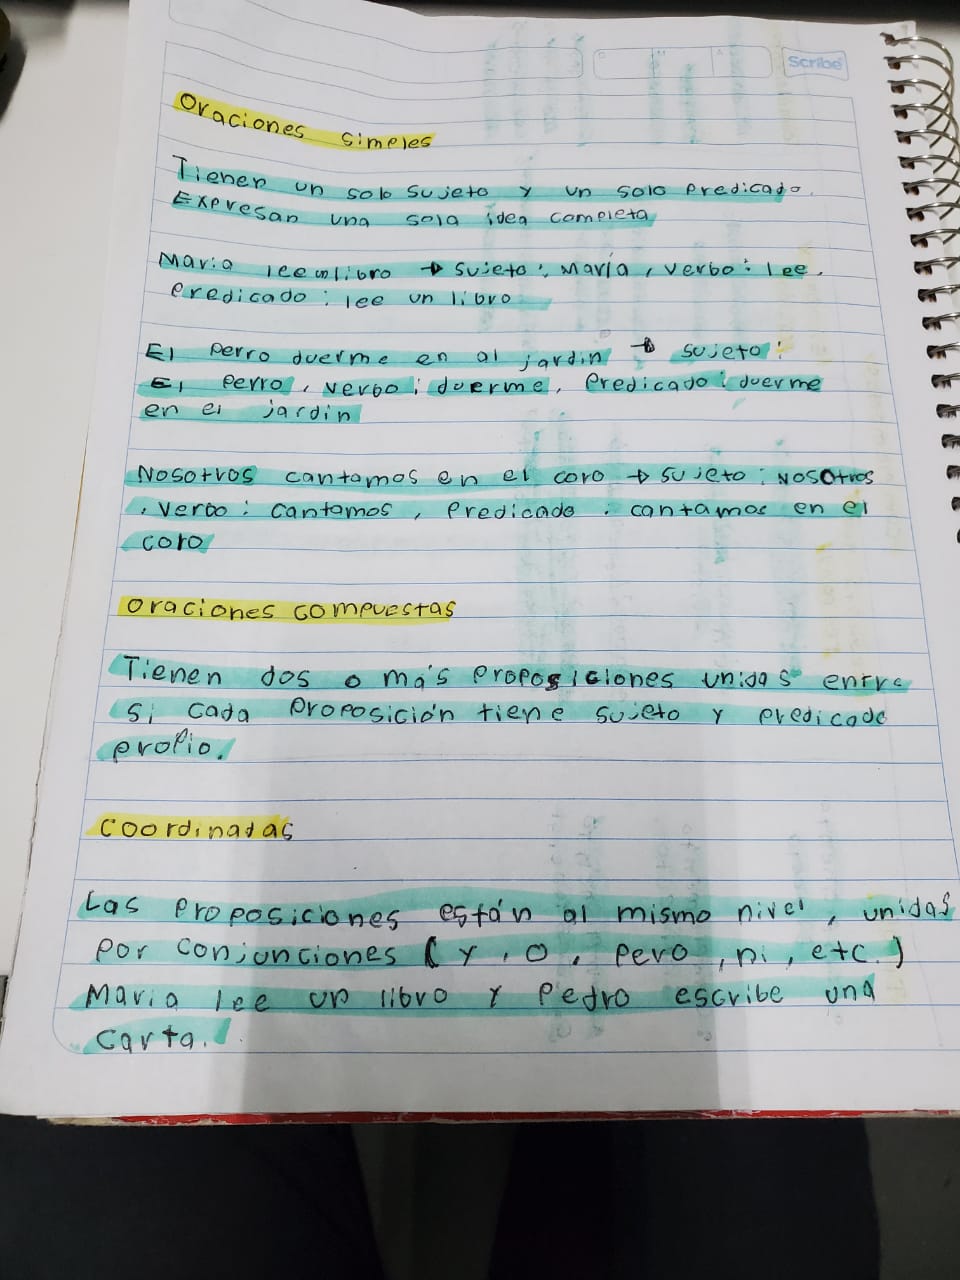 Scribe
Oraciones simples
Tienen un solo sujeto y un solo predicado.
Expresan una sola idea completa
Maria lee un libro → sujeto: María, verbo: lee,
predicado: lee un libro
El perro duerme en al jardin → sujeto:
El perro, verbo: duerme, predicado: duerme
en el jardin
Nosotros cantamos en el coro → sujeto: nosotros
, verbo: cantamos, predicado: cantamos en el
coro
Oraciones compuestas
Tienen dos o más proposiciones unidas entre
si cada proposición tiene sujeto y predicado
propio.
Coordinadas
Las proposiciones están al mismo nivel, unidas
por conjunciones (y, o, pero, ni, etc.)
Maria lee un libro y Pedro escribe una
carta.